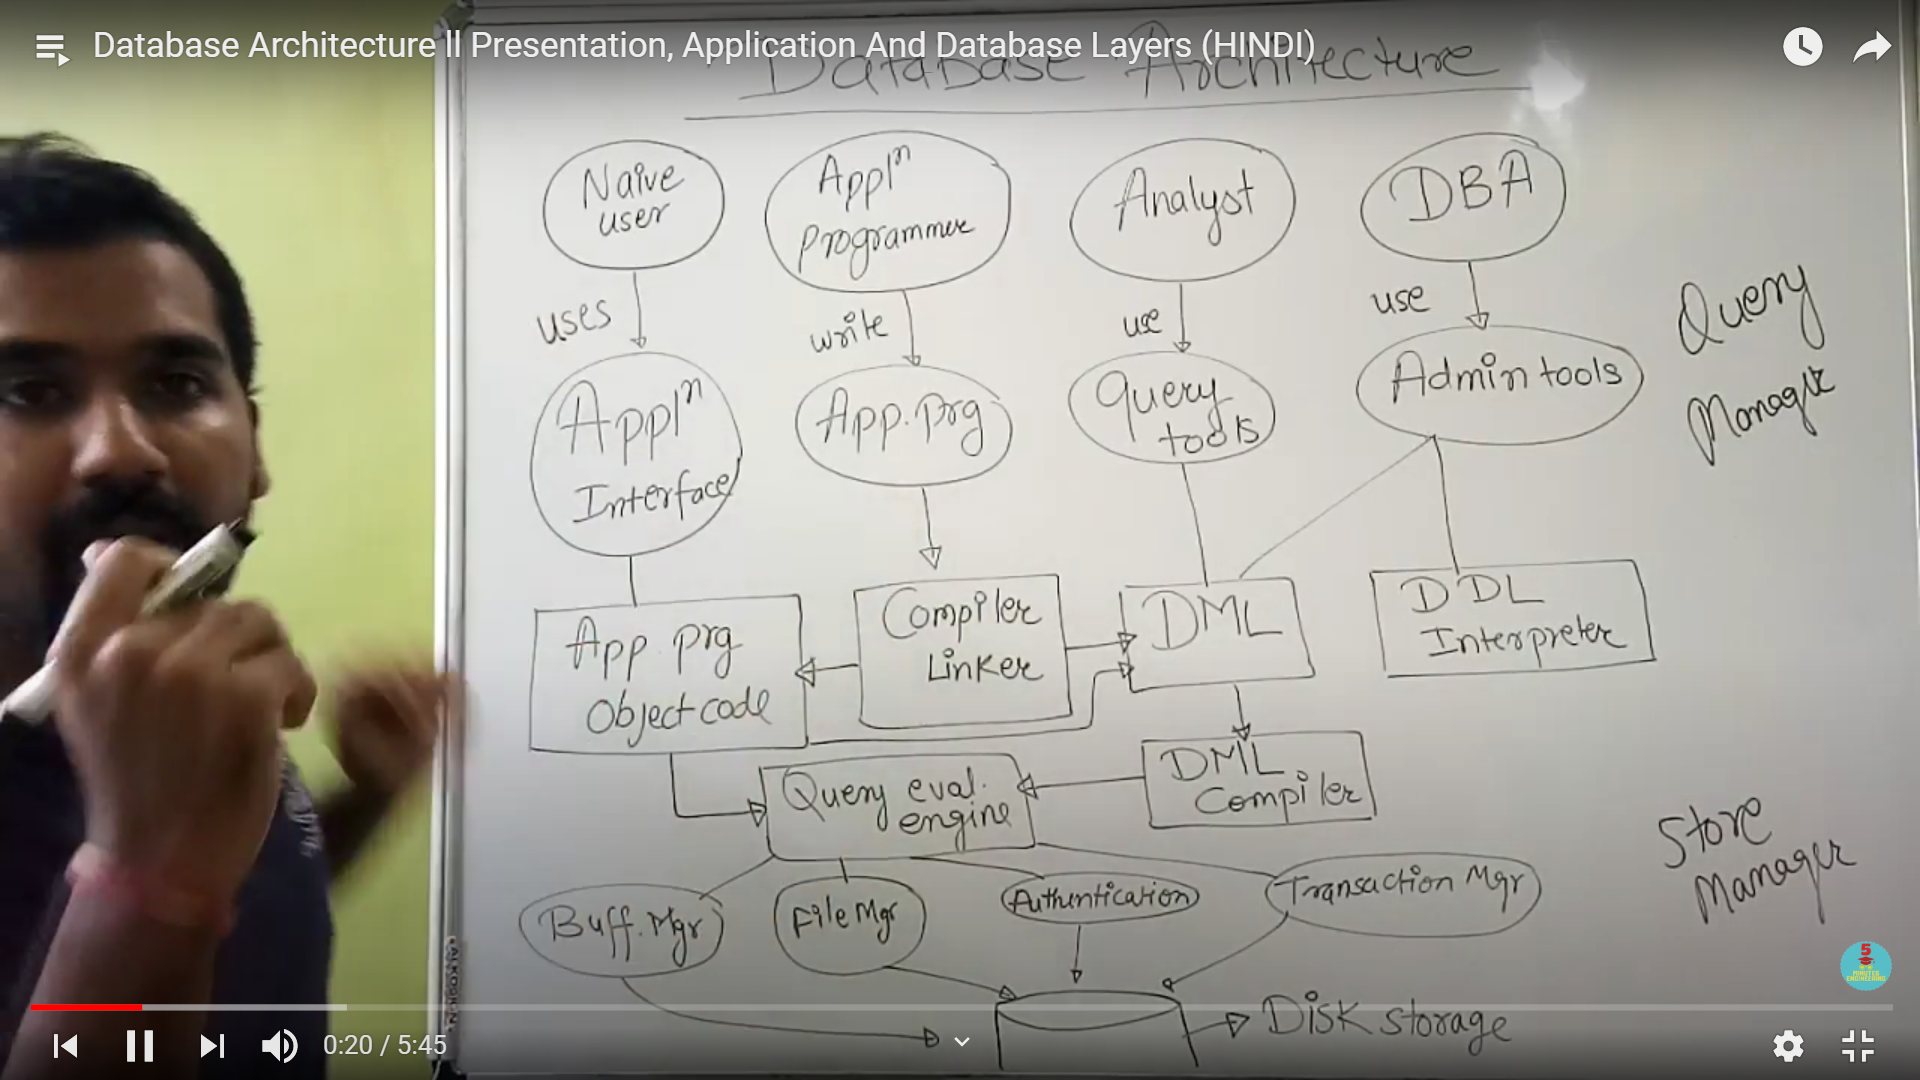 Database Architecture ll Presentation, Application And Database Layers (HINDI)
Database Architecture
Naive
user
Applⁿ
programmer
Analyst
DBA
uses
write
use
use
Applⁿ
Interface
App. prg
Query
tools
Admin tools
Query
Manager
App. prg
Object code
Compiler
Linker
DML
DDL
Interpreter
Query eval.
engine
DML
Compiler
Store
Manager
Buff. Mgr
File Mgr
Authentication
Transaction Mgr
Disk storage
5
MINUTES
ENGINEERING
0:20 / 5:45